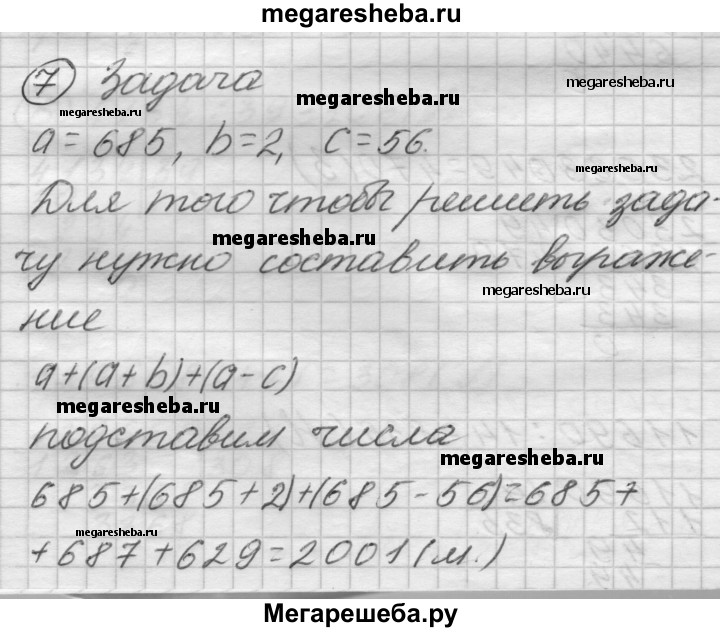 megaresheba.ru
7 Задача
megaresheba.ru
megaresheba.ru
megaresheba.ru
a=685, b=2, c=56.
megaresheba.ru
Для того чтобы решить зада-
megaresheba.ru
чу нужно составить выраже-
megaresheba.ru
ние
a+(a+b)+(a-c)
megaresheba.ru
подставим числа
megaresheba.ru
685+(685+2)+(685-56)=685+
megaresheba.ru
+687+629=2001(м.)
megaresheba.ru
Мегарешеба.ру